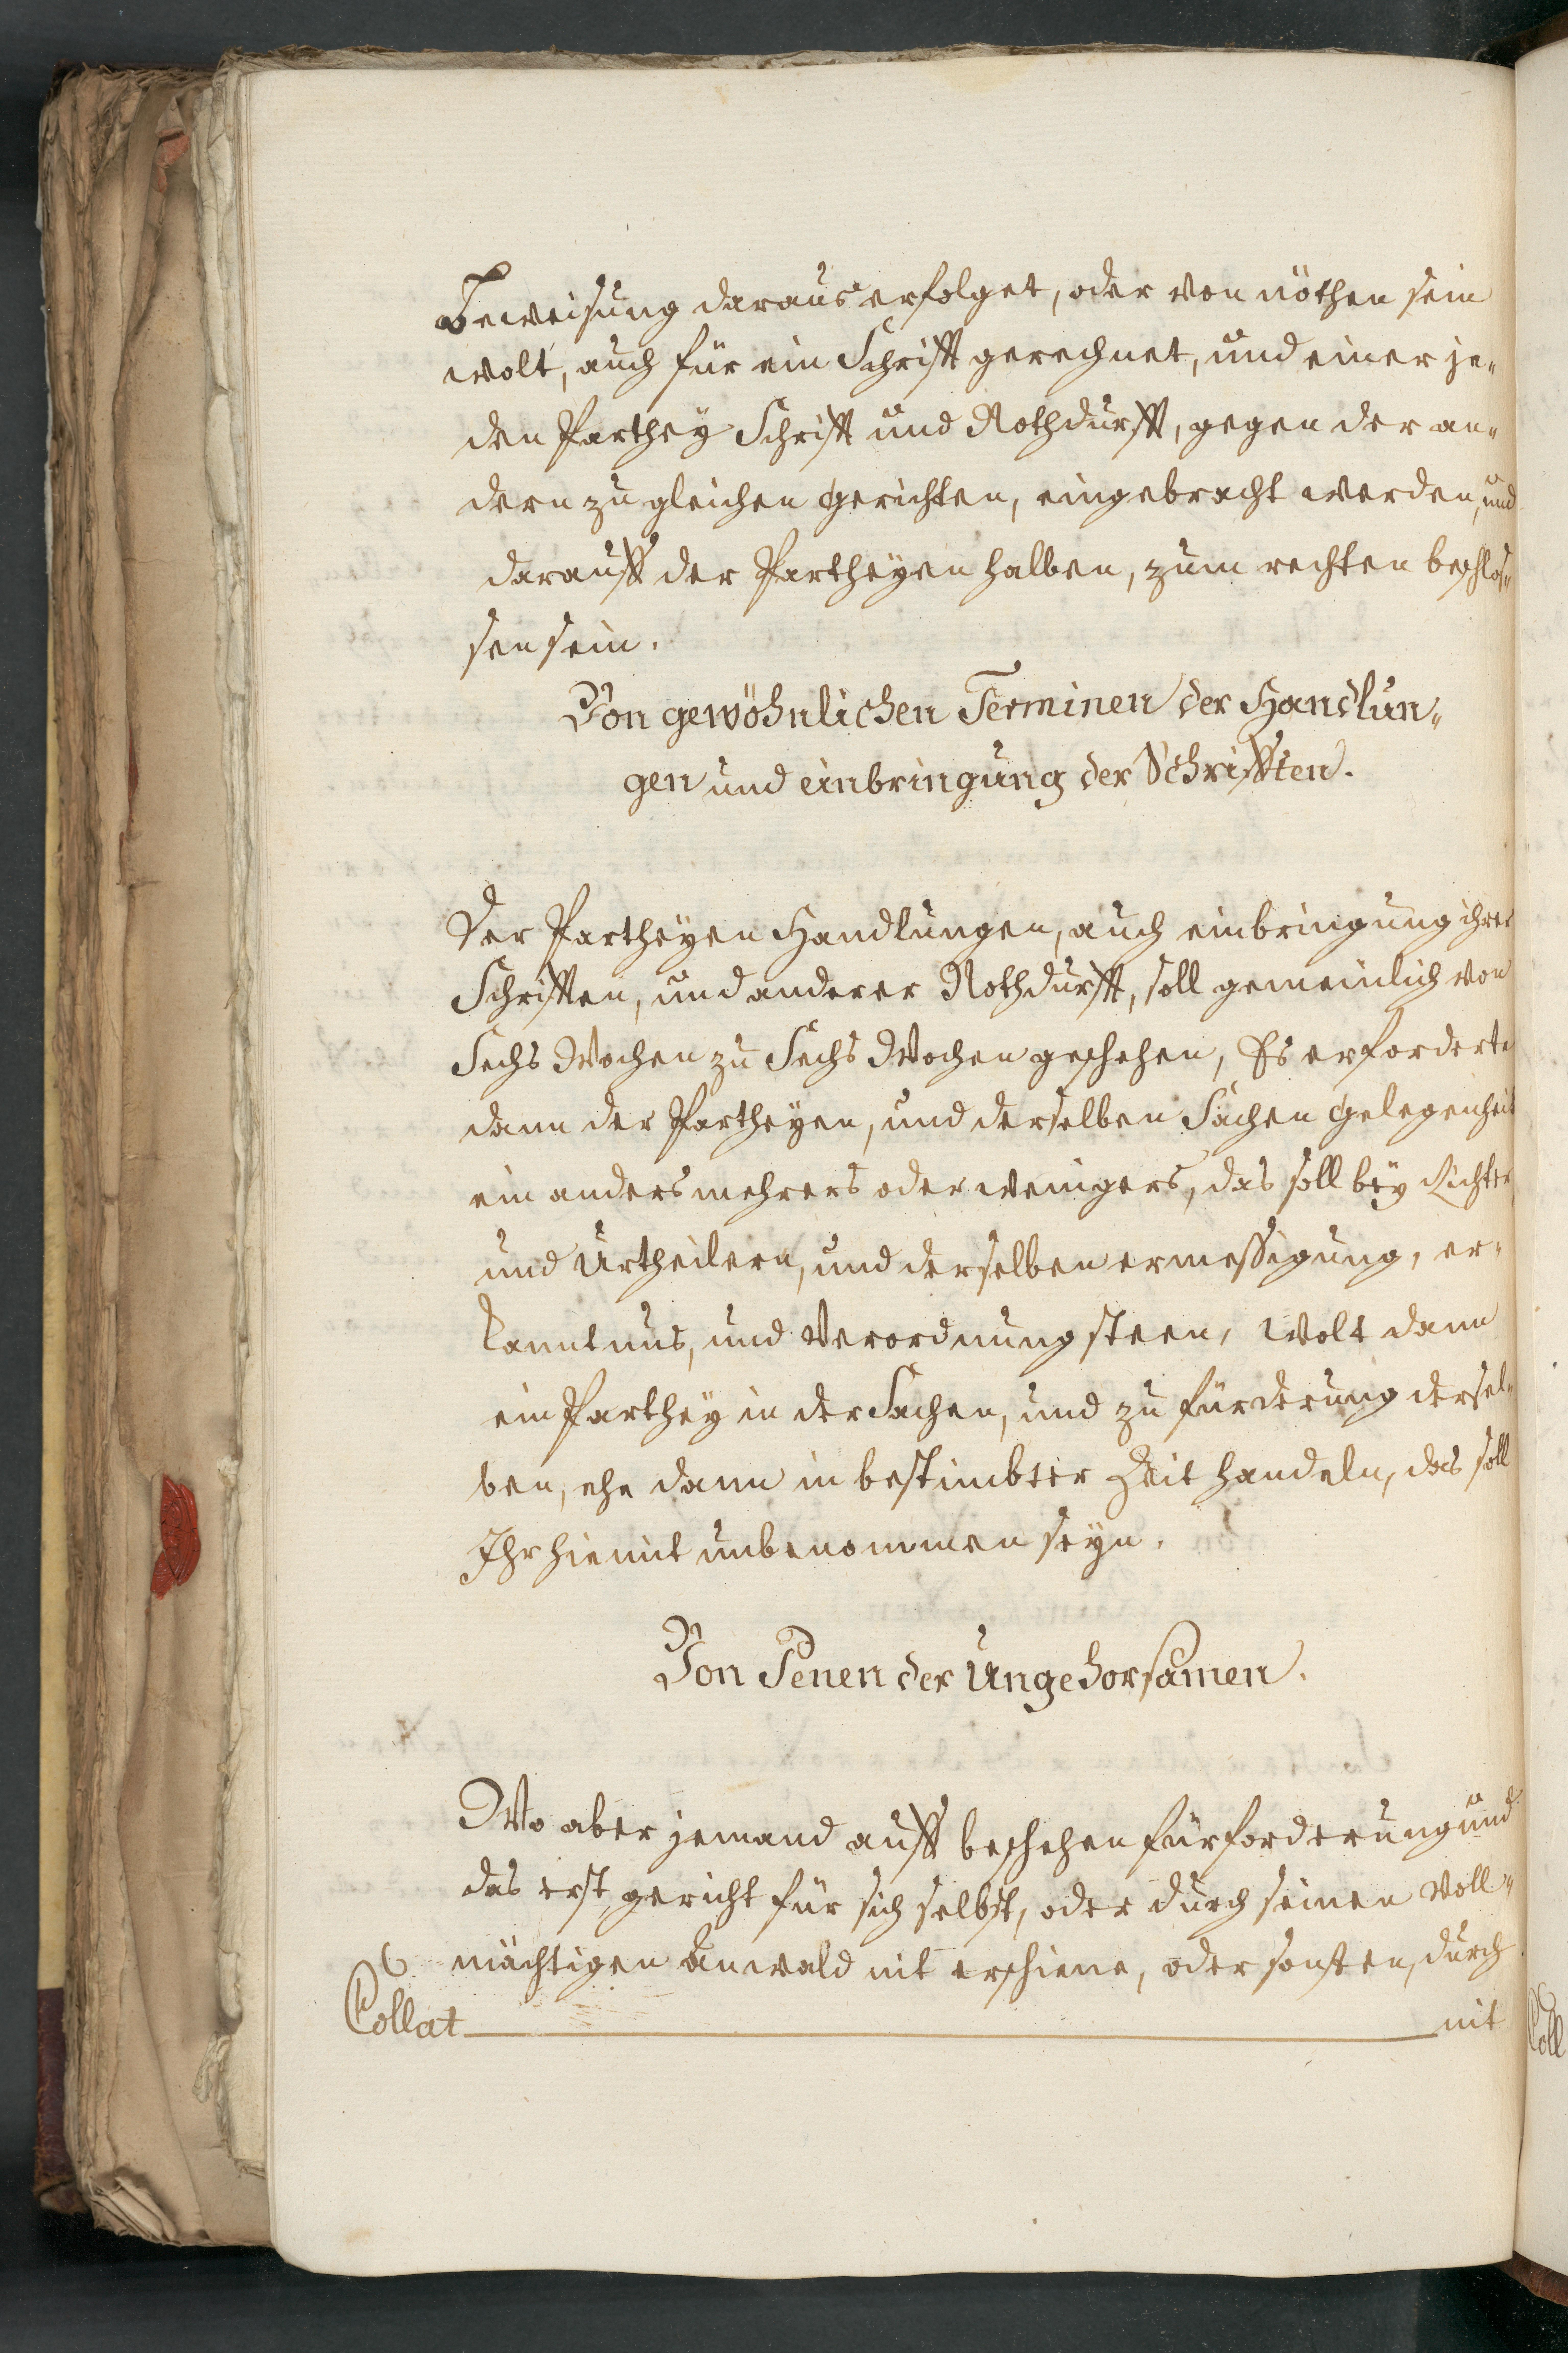 Beweisung daraus erfolget, oder von nöthen sein
wolt, auch für ein Schrifft gerechnet, und einer je„
den Parthey Schrifft und Nothdurfft, gegen der an„
dern zu gleichen Gerichten, eingebracht werden, und
darauff der Partheyen halben, zum rechten beschlos„
sen sein.
Von gewöhnlichen Terminen der Handlun„
gen und einbringung der Schrifften.
Der Partheyen Handlungen, auch einbringung ihrer
Schrifften, und anderer Nothdurfft, soll gemeinlich von
Sechs Wochen zu Sechs Wochen geschehen, Es erforderte
dann der Partheyen, und derselben Sachen Gelegenheit
ein anders mehrers oder weingers, das soll bey Richter
und Urtheilern, und derselben ermessigung, er„
kanntnus, und Verordnung steen, Wolt dann
ein Parthey in der Sachen, und zu fürderung dersel„
ben, ehe dann in bestimbter Zeit handeln, das soll
Ihr hiemit unbenommen seyn.
Von Penen der Ungehorsamen.
Wo aber jemand auff beschehen fürforderung und
das erst gericht für sich selbst, oder durch seinen Voll„
mächtigen Anwald nit erschiene, oder sonsten, durch
Collat nit
Coll